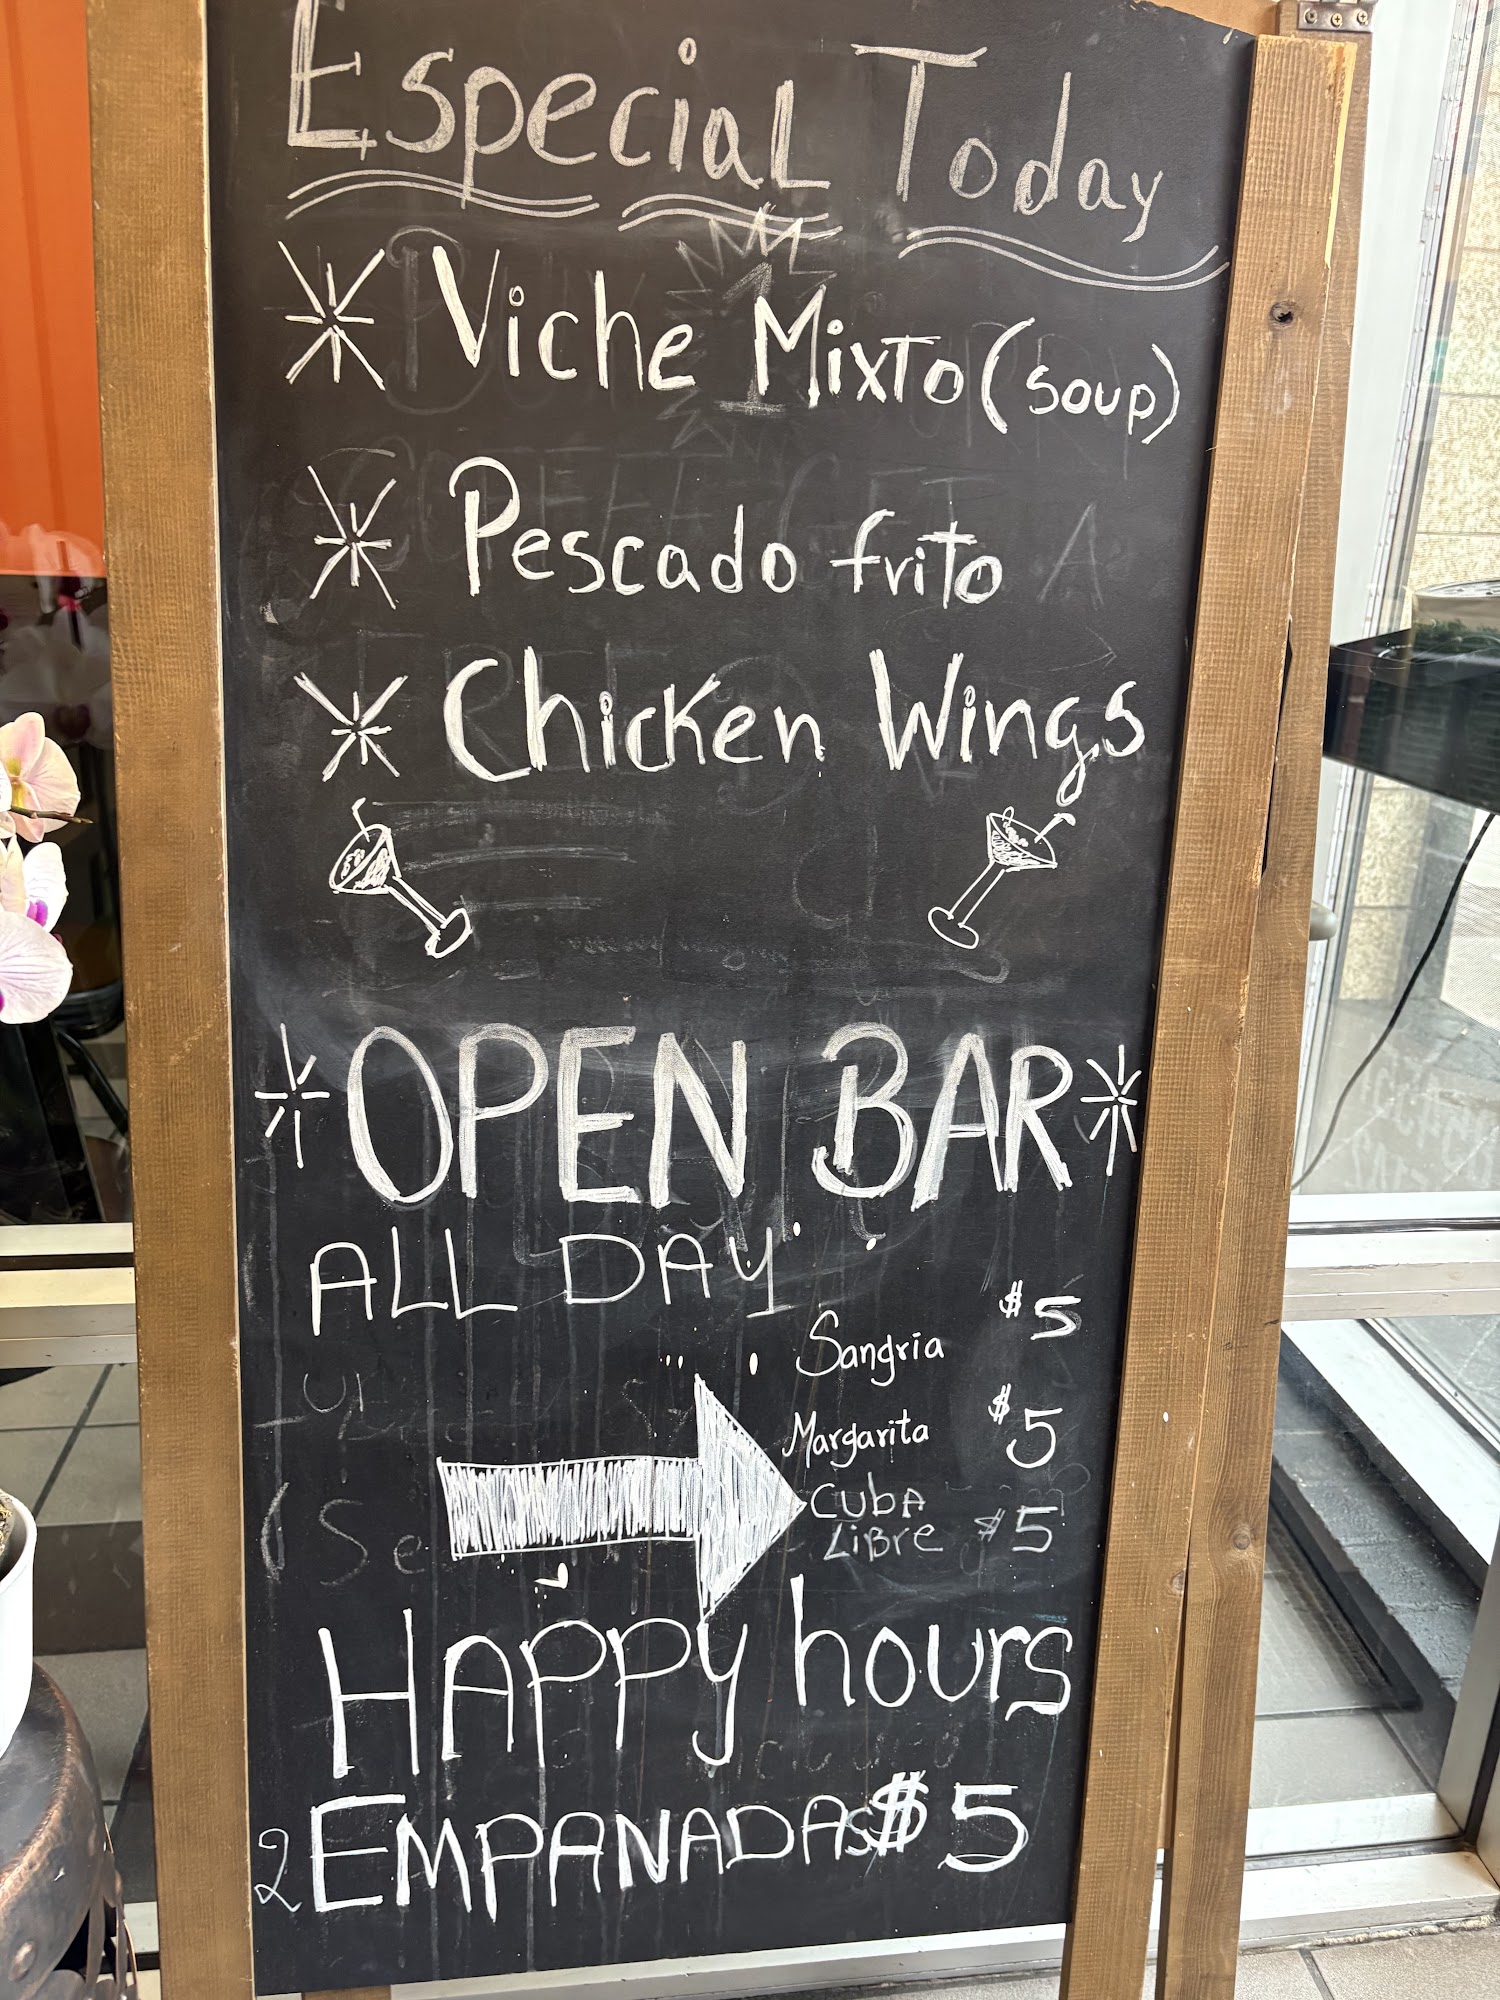 Especial Today
Viche Mixto (soup)
Pescado frito
Chicken Wings
OPEN BAR
ALL DAY
Sangria $5
Margarita $5
Cuba
Libre $5
Happy hours
2 EMPANADAS $5